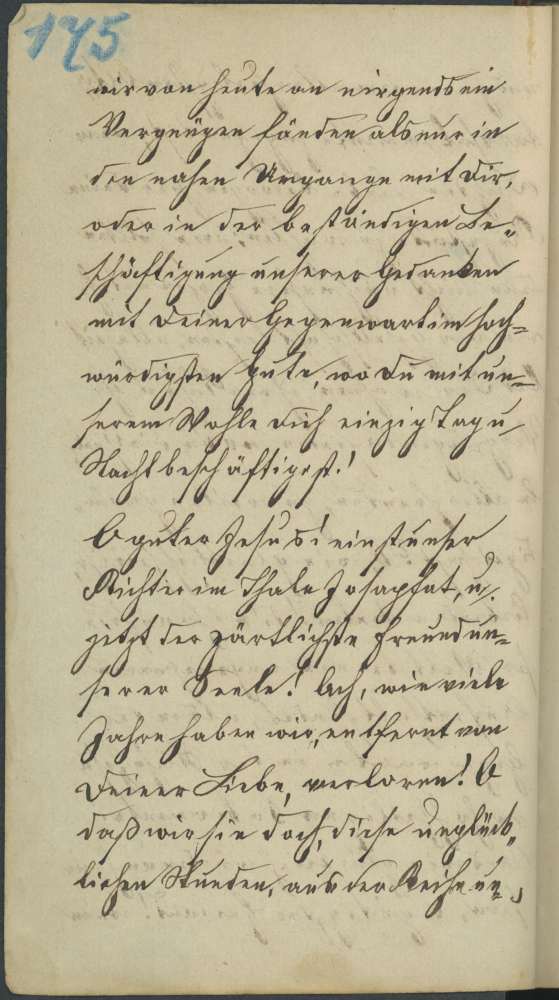 175
wir von heute an nirgends ein
Vergnügen fänden als nur in
den nahen Umgange mit Dir,
oder in der beständigen Be„
schäftigung unserer Gedanken
mit Deiner Gegenwart im hoch=
würdigsten Gute, wo Du mit un=
serem Wohle Dich einzig Tag u
Nacht beschäftigest!
O guter Jesus! einst unser
Richter im Thale Josaphat, u.
jetzt der zärtlichste Freund un=
serer Seele! Ach, wie viele
Jahre haben wir, entfernt von
Deiner Liebe, verloren! O
daß wir sie doch, diese unglück„
lichen Stunden, aus der Reihe un=